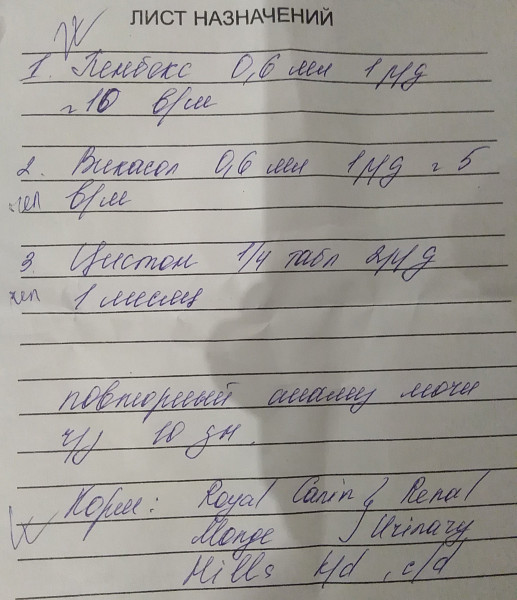 ЛИСТ НАЗНАЧЕНИЙ
1. Пенбекс 0,6 мл 1 р/д
№ 10 в/м
2. Викасол 0,6 мл 1 р/д № 5
чел в/м
3. Цистон 1/4 табл 2 р/д
чел 1 месяц
повторный анализ мочи
ч/з 10 дн.
Корм: Royal Canin } Renal
Monge } Urinary
Hills k/d, c/d